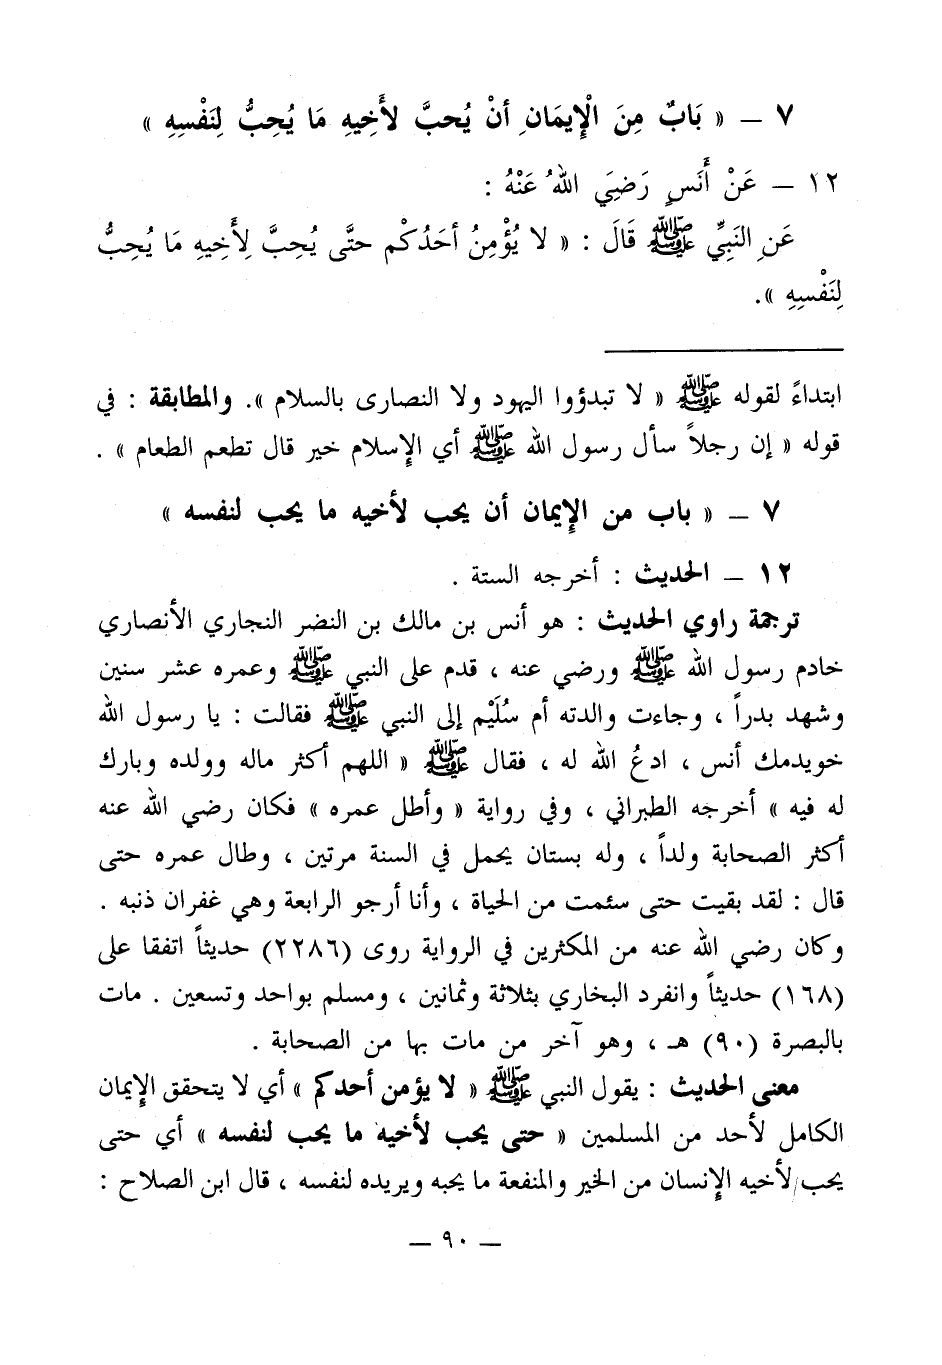 ٧ – « بَابٌ مِنَ الْإِيمَانِ أنْ يُحبَّ لأَخِيهِ مَا يُحِبُّ لِنَفْسِهِ »
١٢ – عَنْ أَنَسٍ رَضِيَ اللهُ عَنْهُ :
عَنِ النَبِيِّ ﷺ قَالَ : « لا يُؤْمِنُ أحَدُكُم حتَّى يُحِبَّ لِأَخِيهِ مَا يُحِبُّ
لِنَفْسِهِ ».
ابتداءً لقوله ﷺ « لا تبدؤوا اليهود ولا النصارى بالسلام ». والمطابقة : في
قوله « إن رجلاً سأل رسول الله ﷺ أي الإسلام خير قال تطعم الطعام » .
٧ – « باب من الإيمان أن يحب لأخيه ما يحب لنفسه »
١٢ – الحديث : أخرجه الستة .
ترجمة راوي الحديث : هو أنس بن مالك بن النضر النجاري الأنصاري
خادم رسول الله ﷺ ورضي عنه ، قدم على النبي ﷺ وعمره عشر سنين
وشهد بدراً ، وجاءت والدته أم سُلَيْم إلى النبي ﷺ فقالت : يا رسول الله
خويدمك أنس ، ادعُ الله له ، فقال ﷺ « اللهم أكثر ماله وولده وبارك
له فيه » أخرجه الطبراني ، وفي رواية « وأطل عمره » فكان رضي الله عنه
أكثر الصحابة ولداً ، وله بستان يحمل في السنة مرتين ، وطال عمره حتى
قال : لقد بقيت حتى سئمت من الحياة ، وأنا أرجو الرابعة وهي غفران ذنبه .
وكان رضي الله عنه من المكثرين في الرواية روى (٢٢٨٦) حديثاً اتفقا على
(١٦٨) حديثاً وانفرد البخاري بثلاثة وثمانين ، ومسلم بواحد وتسعين . مات
بالبصرة (٩٠) هـ ، وهو آخر من مات بها من الصحابة .
معنى الحديث : يقول النبي ﷺ « لا يؤمن أحدكم » أي لا يتحقق الإيمان
الكامل لأحد من المسلمين « حتى يحب لأخيه ما يحب لنفسه » أي حتى
يحب لأخيه الإنسان من الخير والمنفعة ما يحبه ويريده لنفسه ، قال ابن الصلاح :
– ٩٠ –